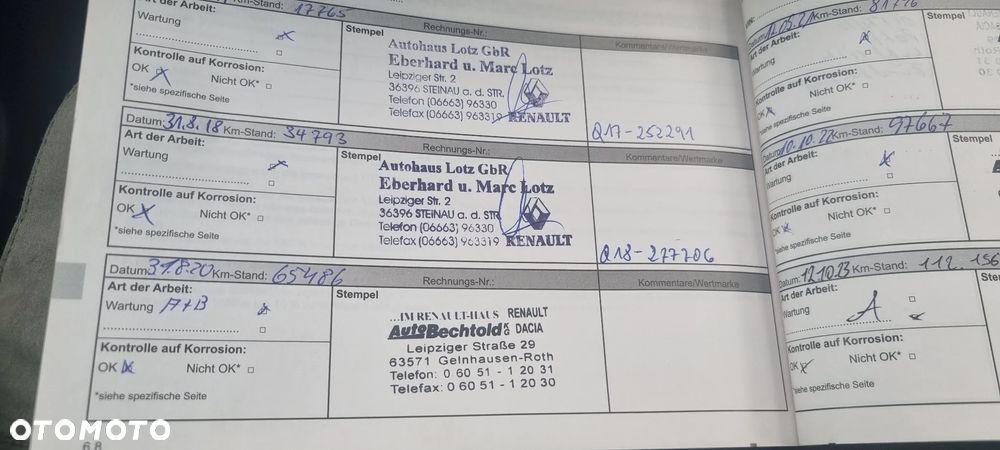 Km-Stand: 17765
Art der Arbeit:
Wartung
Rechnungs-Nr.:
Stempel
Kommentare/Wertmarke
Kontrolle auf Korrosion:
OK X Nicht OK*
*siehe spezifische Seite
Autohaus Lotz GbR
Eberhard u. Marc Lotz
Leipziger Str. 2
36396 STEINAU a. d. STR.
Telefon (06663) 96330
Telefax (06663) 963319 RENAULT
Q17-252291
Datum: 31.8.18 Km-Stand: 34793
Art der Arbeit:
Wartung
Stempel
Kommentare/Wertmarke
Kontrolle auf Korrosion:
OK X Nicht OK*
*siehe spezifische Seite
Autohaus Lotz GbR
Eberhard u. Marc Lotz
Leipziger Str. 2
36396 STEINAU a. d. STR
Telefon (06663) 96330
Telefax (06663) 963319 RENAULT
Q18-277706
Datum: 31.8.20 Km-Stand: 65486
Art der Arbeit:
Wartung A+B
Rechnungs-Nr.:
Stempel
Kommentare/Wertmarke
Kontrolle auf Korrosion:
OK X Nicht OK*
*siehe spezifische Seite
...IM RENAULT-HAUS RENAULT
AutoBechtold KG DACIA
Leipziger Straße 29
63571 Gelnhausen-Roth
Telefon: 0 60 51 - 1 20 31
Telefax: 0 60 51 - 1 20 30
68
Km-Stand:
Art der Arbeit:
Wartung
Stempel
Kontrolle auf Korrosion:
OK X Nicht OK*
*siehe spezifische Seite
Datum: 10.10.22 Km-Stand: 97667
Art der Arbeit:
Wartung
Stempel
Kontrolle auf Korrosion:
OK X Nicht OK*
*siehe spezifische Seite
Datum: 12.10.23 Km-Stand: 112.156
Art der Arbeit:
Wartung A
Stempel
Kontrolle auf Korrosion:
OK X Nicht OK*
*siehe spezifische Seite
OTOMOTO